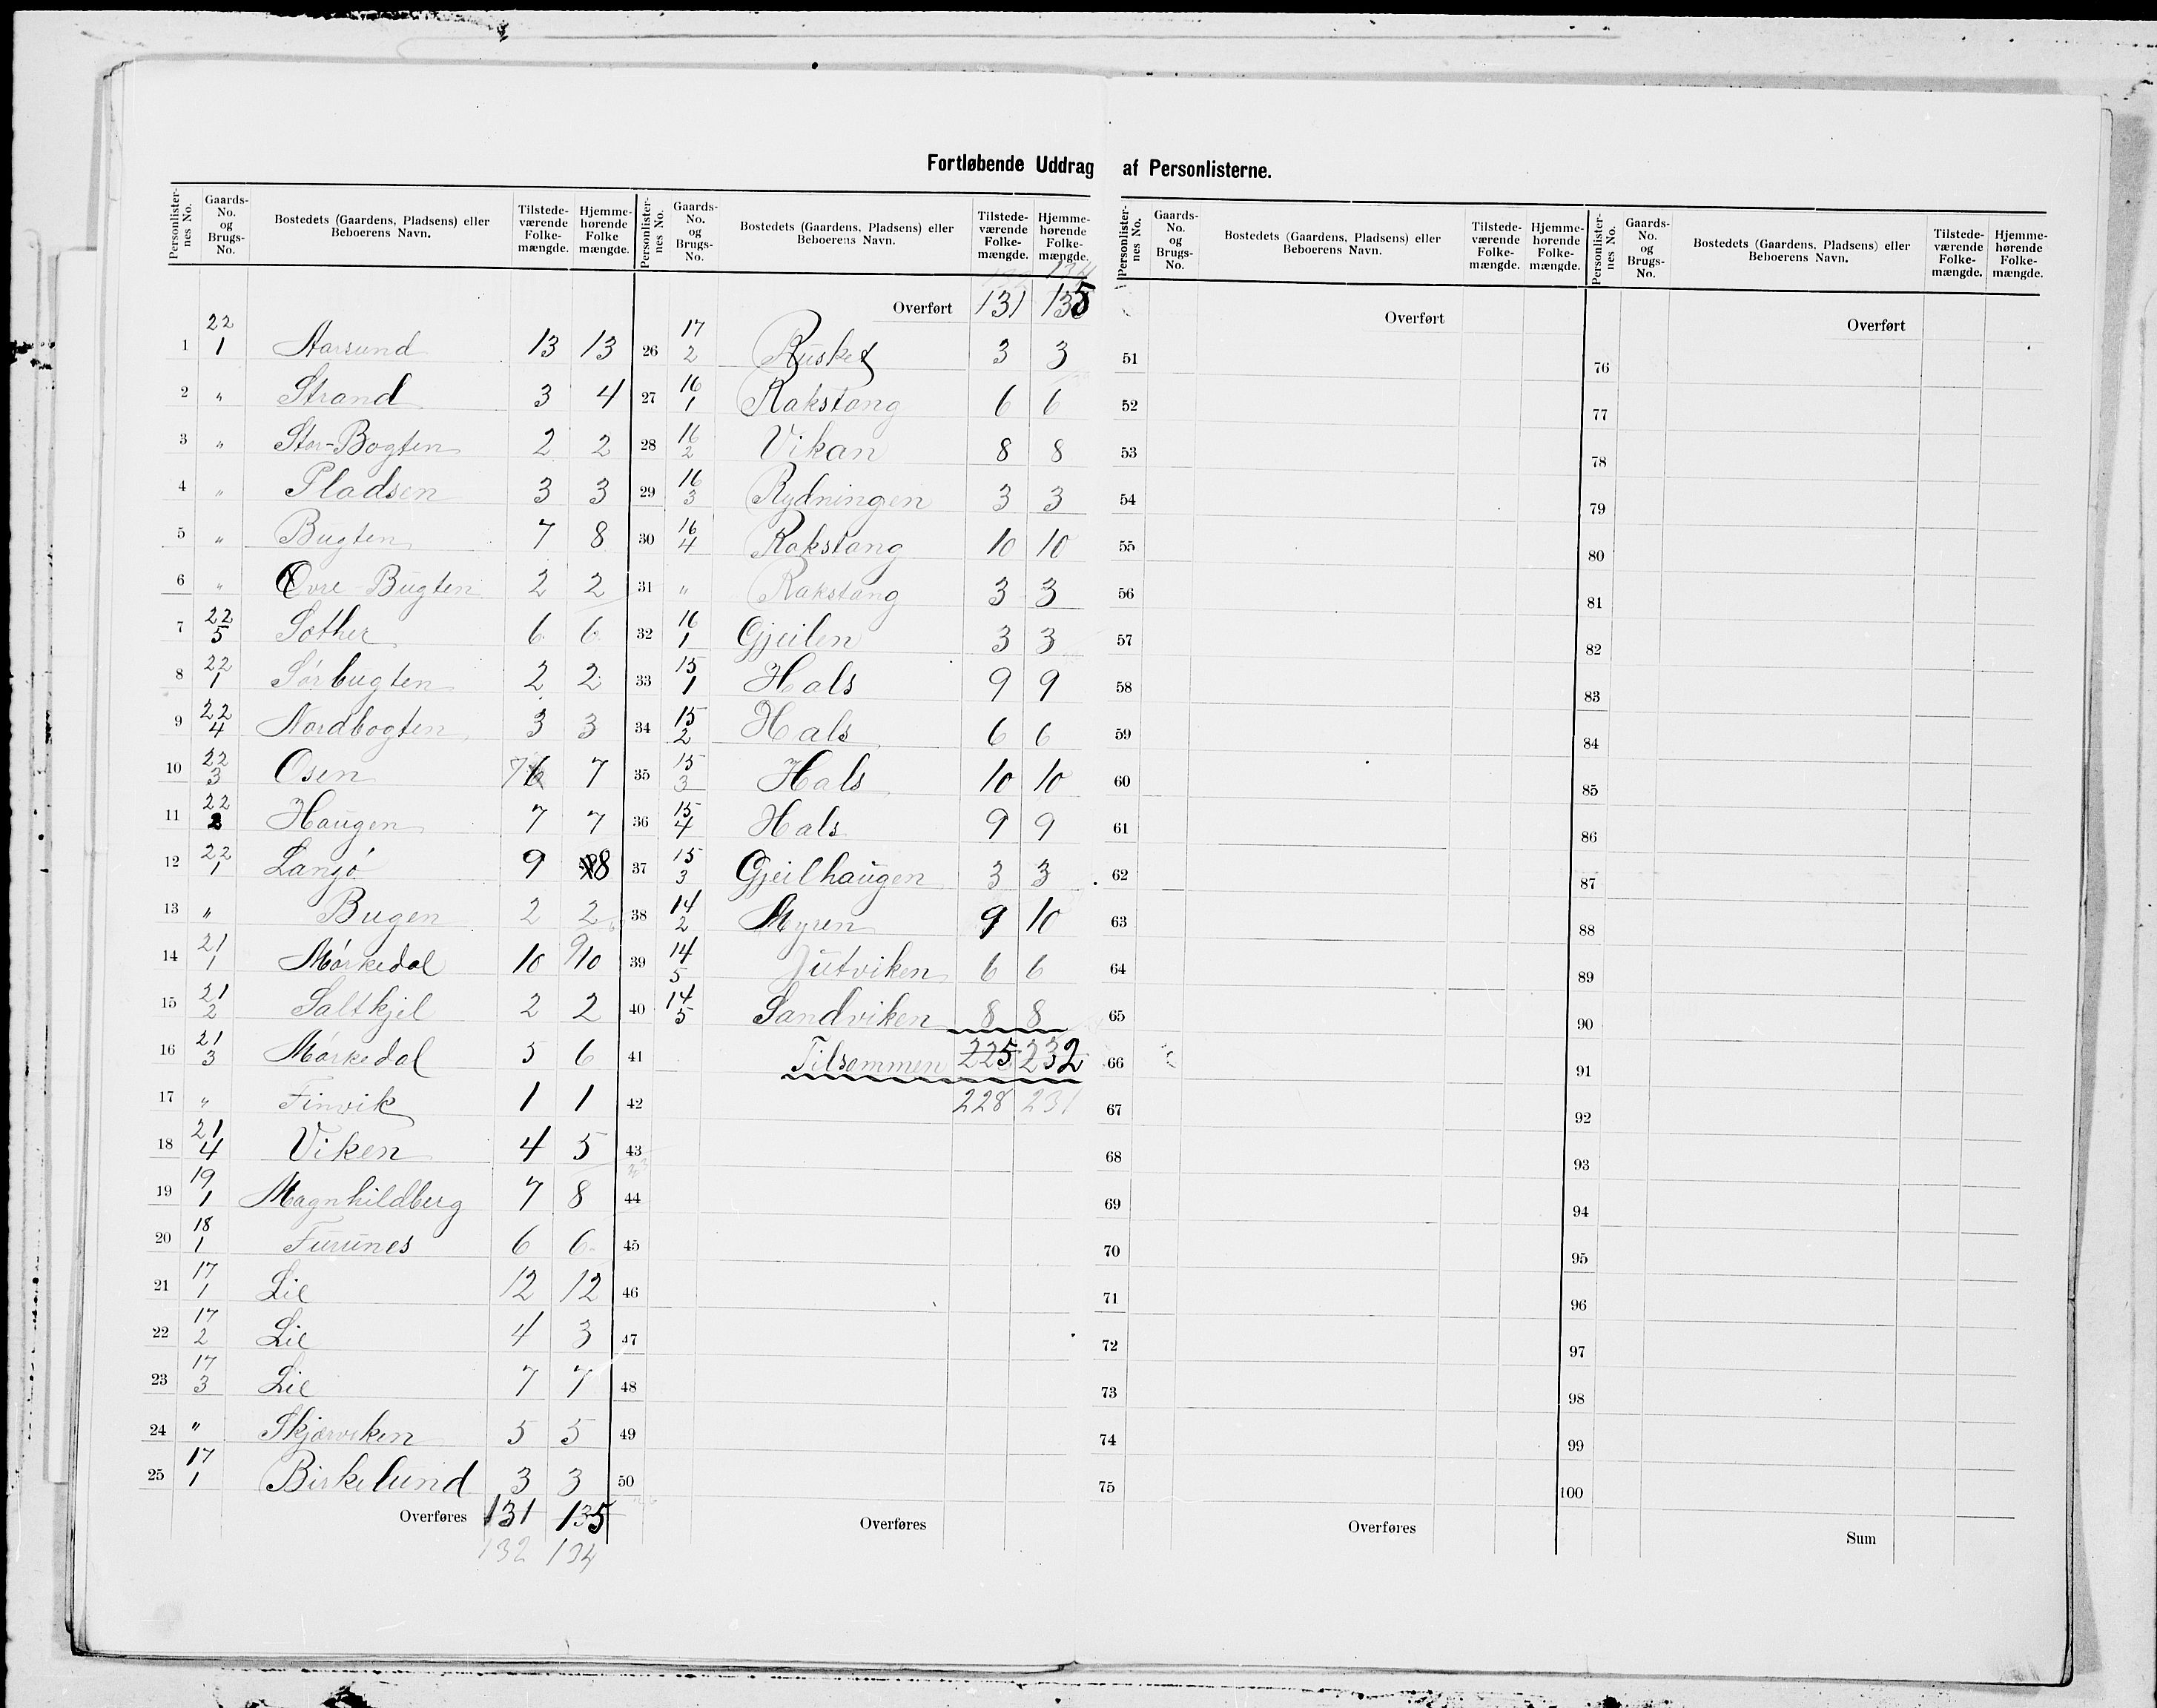 Fortløbende Uddrag af Personlisterne.
Personlister-nes No. | Gaards-No. og Brugs-No. | Bostedets (Gaardens, Pladsens) eller Beboerens Navn. | Tilstede-værende Folke-mængde. | Hjemme-hørende Folke mængde.
1 22/1 Aarsund 13 13
2 " Strand 3 4
3 " Stor-Bogten 2 2
4 " Pladsen 3 3
5 " Bugten 7 8
6 " Övre Bugten 2 2
7 22/5 Sother 6 6
8 22/1 Sørbugten 2 2
9 22/4 Nordbogten 3 3
10 22/3 Osen 7 6 7
11 22/2 Haugen 7 7
12 22/1 Langö 9 8
13 " Bugen 2 2
14 21/1 Mörkedal 10 9 10
15 21/2 Saltkjel 2 2
16 21/3 Mörkedal 5 6
17 " Finvik 1 1
18 21/4 Viken 4 5
19 19/1 Magnhildberg 7 8
20 18/1 Furunes 6 6
21 17/1 Lie 12 12
22 17/2 Lie 4 3
23 17/3 Lie 7 7
24 " Skjærviken 5 5
25 17/1 Birkelund 3 3
Overføres 131 135
132 134
Personlister-nes No. | Gaards-No. og Brugs-No. | Bostedets (Gaardens, Pladsens) eller Beboerens Navn. | Tilstede-værende Folke-mængde. | Hjemme-hørende Folke-mængde.
132 134
Overført 131 135
26 17/2 Rusket 3 3
27 16/1 Rakstang 6 6
28 16/2 Vikan 8 8
29 16/3 Rydningen 3 3
30 16/4 Rakstang 10 10
31 " Rakstang 3 3
32 16/1 Gjeilen 3 3
33 15/1 Hals 9 9
34 15/2 Hals 6 6
35 15/3 Hals 10 10
36 15/4 Hals 9 9
37 15/3 Gjeilhaugen 3 3
38 14/2 Myren 9 10
39 14/5 Jutviken 6 6
40 14/5 Sandviken 8 8
41 Tilsammen 225 232
42 228 231
43
44
45
46
47
48
49
50
Overføres
Personlister-nes No. | Gaards-No. og Brugs-No. | Bostedets (Gaardens, Pladsens) eller Beboerens Navn. | Tilstede-værende Folke-mængde. | Hjemme-hørende Folke-mængde.
Overført
51
52
53
54
55
56
57
58
59
60
61
62
63
64
65
66
67
68
69
70
71
72
73
74
75
Overføres
Personlister-nes No. | Gaards-No. og Brugs-No. | Bostedets (Gaardens, Pladsens) eller Beboerens Navn. | Tilstede-værende Folke-mængde. | Hjemme-hørende Folke-mængde.
Overført
76
77
78
79
80
81
82
83
84
85
86
87
88
89
90
91
92
93
94
95
96
97
98
99
100
Sum